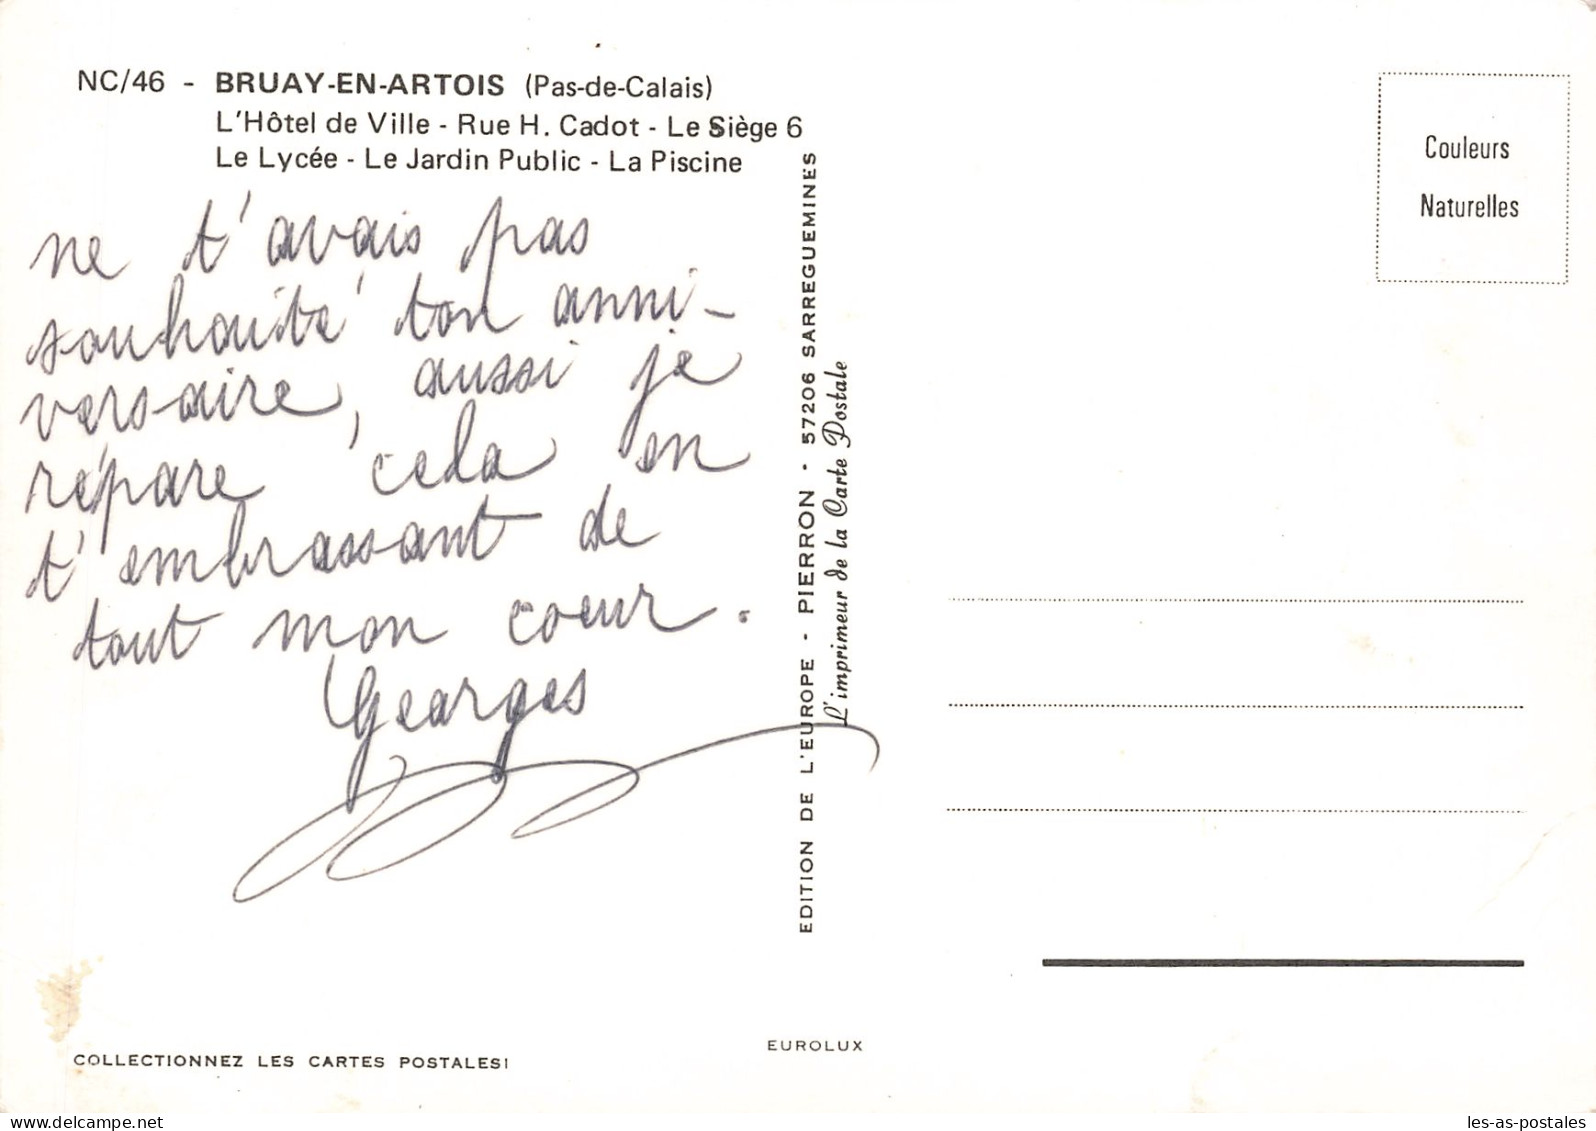 NC/46 - BRUAY-EN-ARTOIS (Pas-de-Calais)
L'Hôtel de Ville - Rue H. Cadot - Le Siège 6
Le Lycée - Le Jardin Public - La Piscine
ne t'avais pas
souhaité ton anni-
versaire, aussi je
répare cela en
t'embrassant de
tout mon coeur.
Georges
EDITION DE L'EUROPE - PIERRON - 57206 SARREGUEMINES
L'imprimeur de la Carte Postale
Couleurs
Naturelles
COLLECTIONNEZ LES CARTES POSTALES!
EUROLUX
les-as-postales